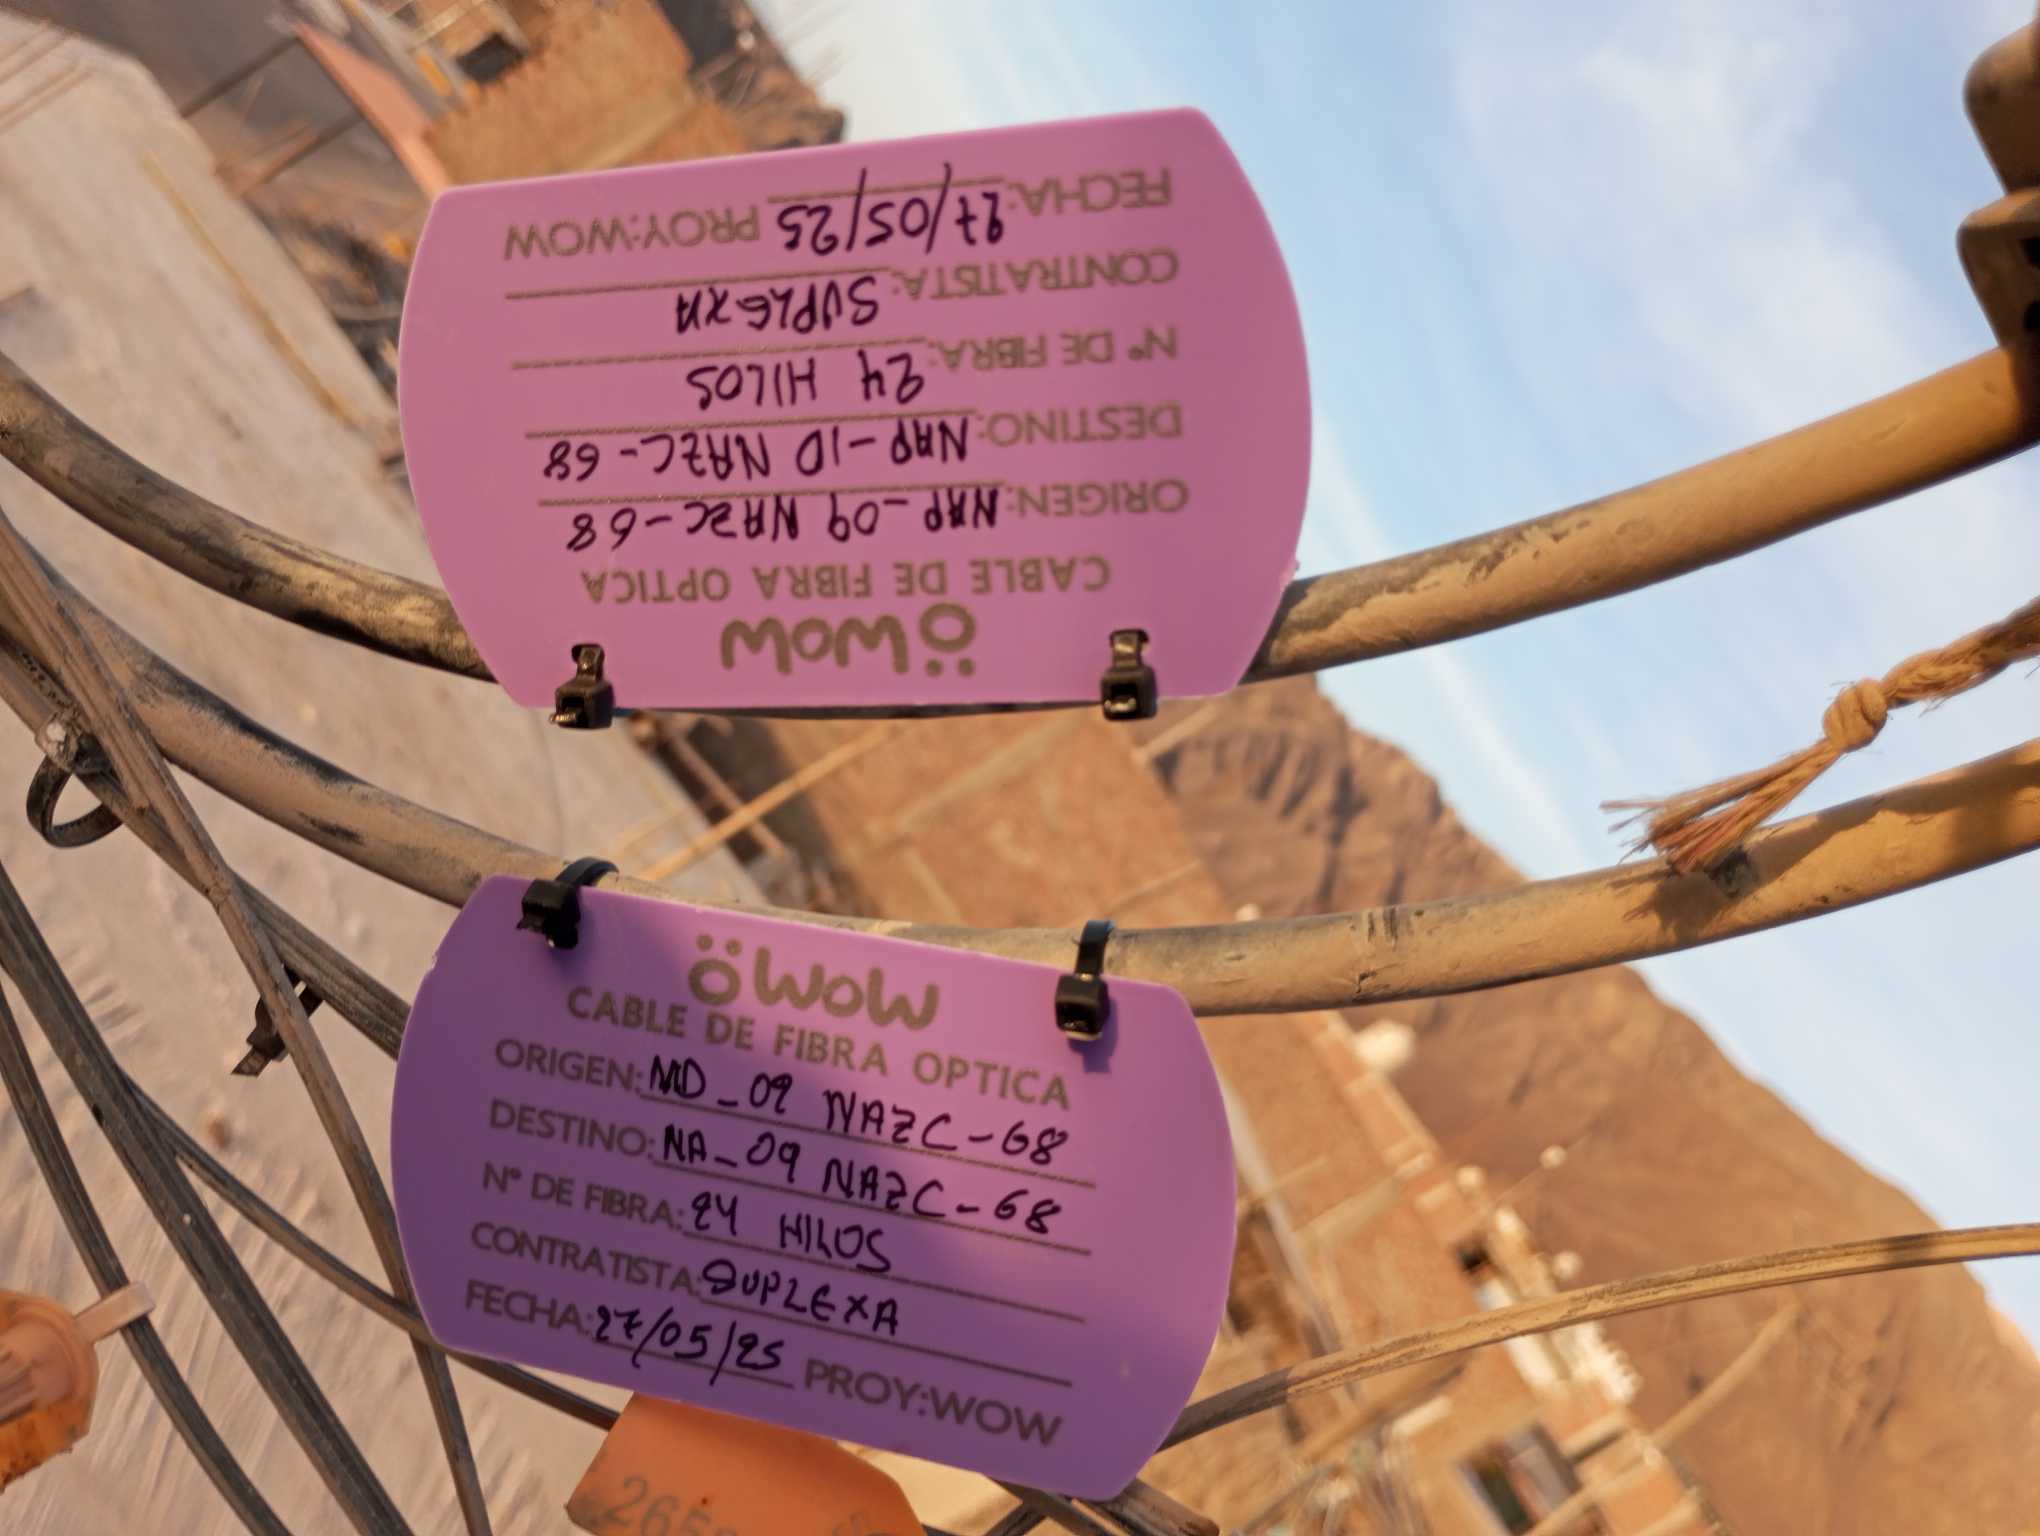 wow
CABLE DE FIBRA OPTICA
ORIGEN: NAP-09 NAZC-68
DESTINO: NAP-10 NAZC-68
N° DE FIBRA: 24 HILOS
CONTRATISTA: SUPLEXA
FECHA: 27/05/25 PROY:WOW
wow
CABLE DE FIBRA OPTICA
ORIGEN: MD_09 NAZC-68
DESTINO: NA_09 NAZC-68
N° DE FIBRA: 24 HILOS
CONTRATISTA: SUPLEXA
FECHA: 27/05/25 PROY:WOW